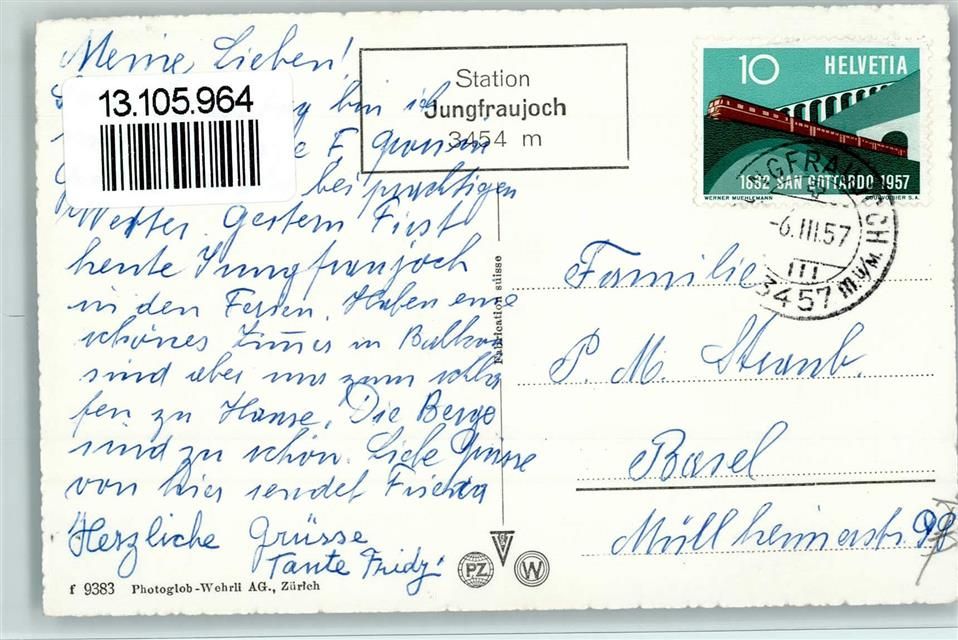 Meine Lieben!
13.105.964
bin ich
F
bei prächtigen
Wetter. Gestern First
heute Jungfraujoch
in den Ferien. Haben eine
schönes Zimmer m Balkon
sind aber nur zum schla
fen zu Hause. Die Berge
sind zu schön. Liebe Grüsse
von hier sendet Frieda
Herzliche Grüsse
Tante Fridy
f 9383 Photoglob-Wehrli AG., Zürich
Station
Jungfraujoch
3454 m
10 HELVETIA
1882 SAN GOTTARDO 1957
WERNER MUEHLEMANN COURVOISIER S.A.
JUNGFRAUJOCH
-6.III.57
III
3457 m ü/M.
Fabrication suisse
Familie
P. M. Straub.
Basel
Müllheimerstr.
PZ W